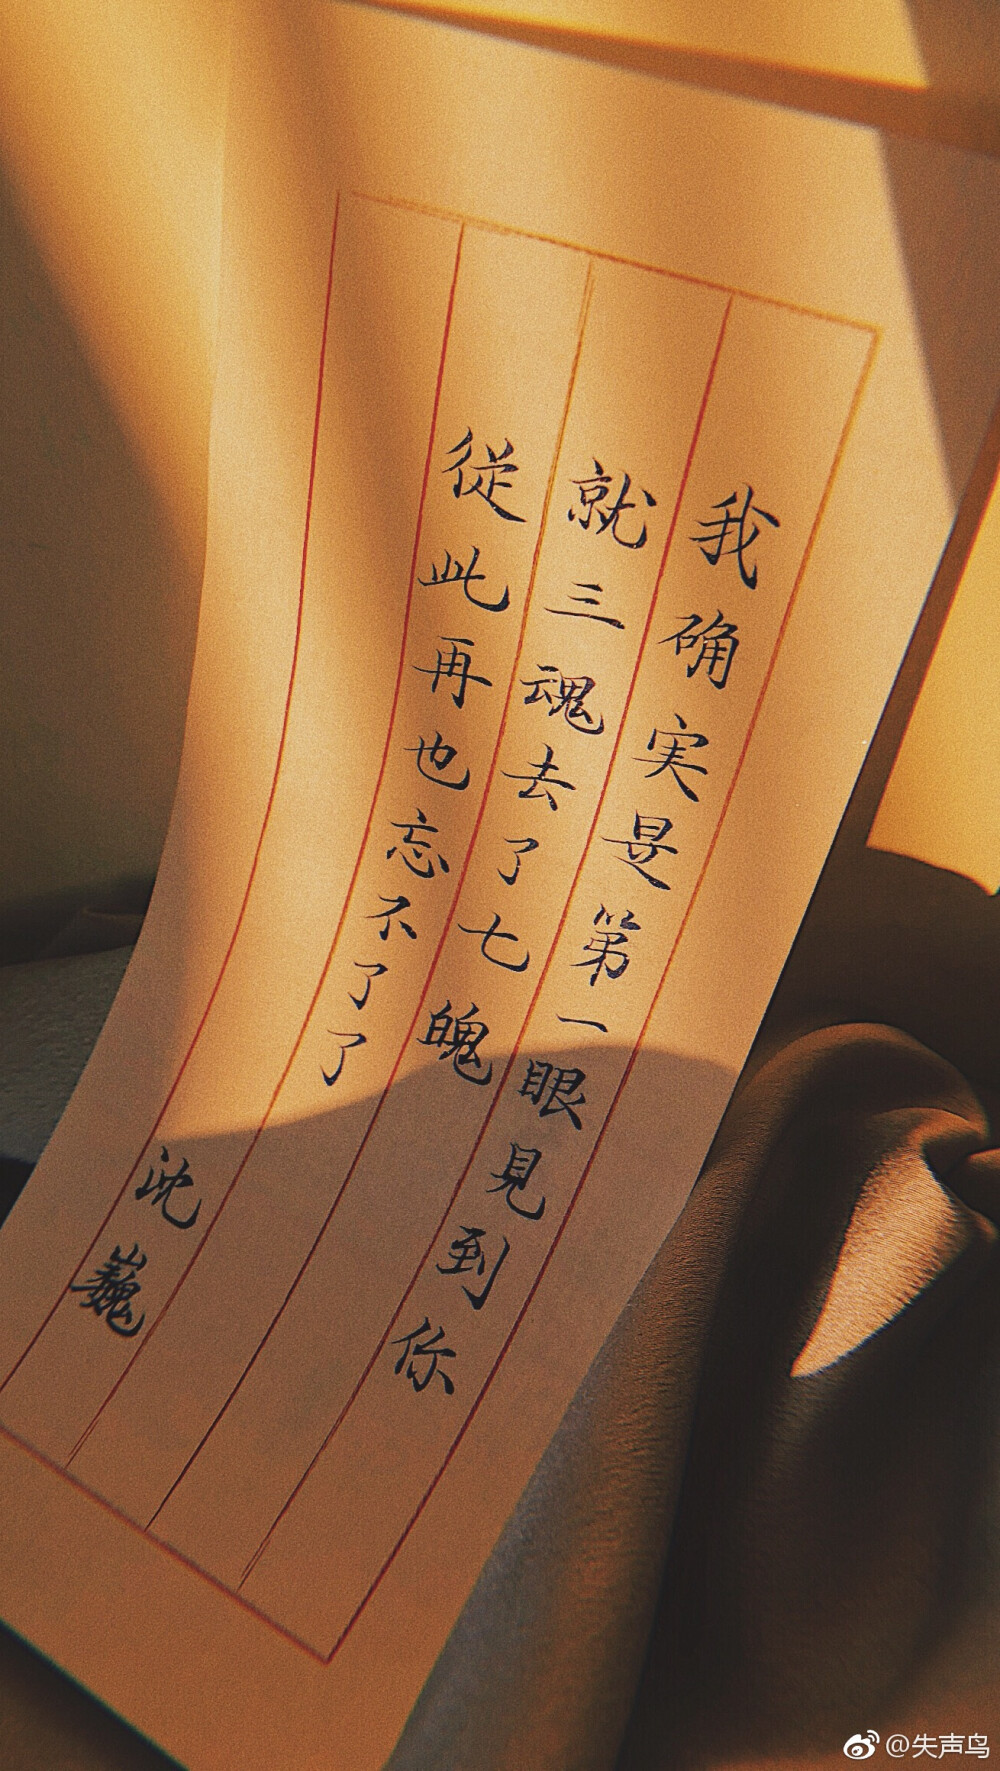 我确实是第一眼見到你
就三魂去了七魄
從此再也忘不了了
沈巍
@失声鸟